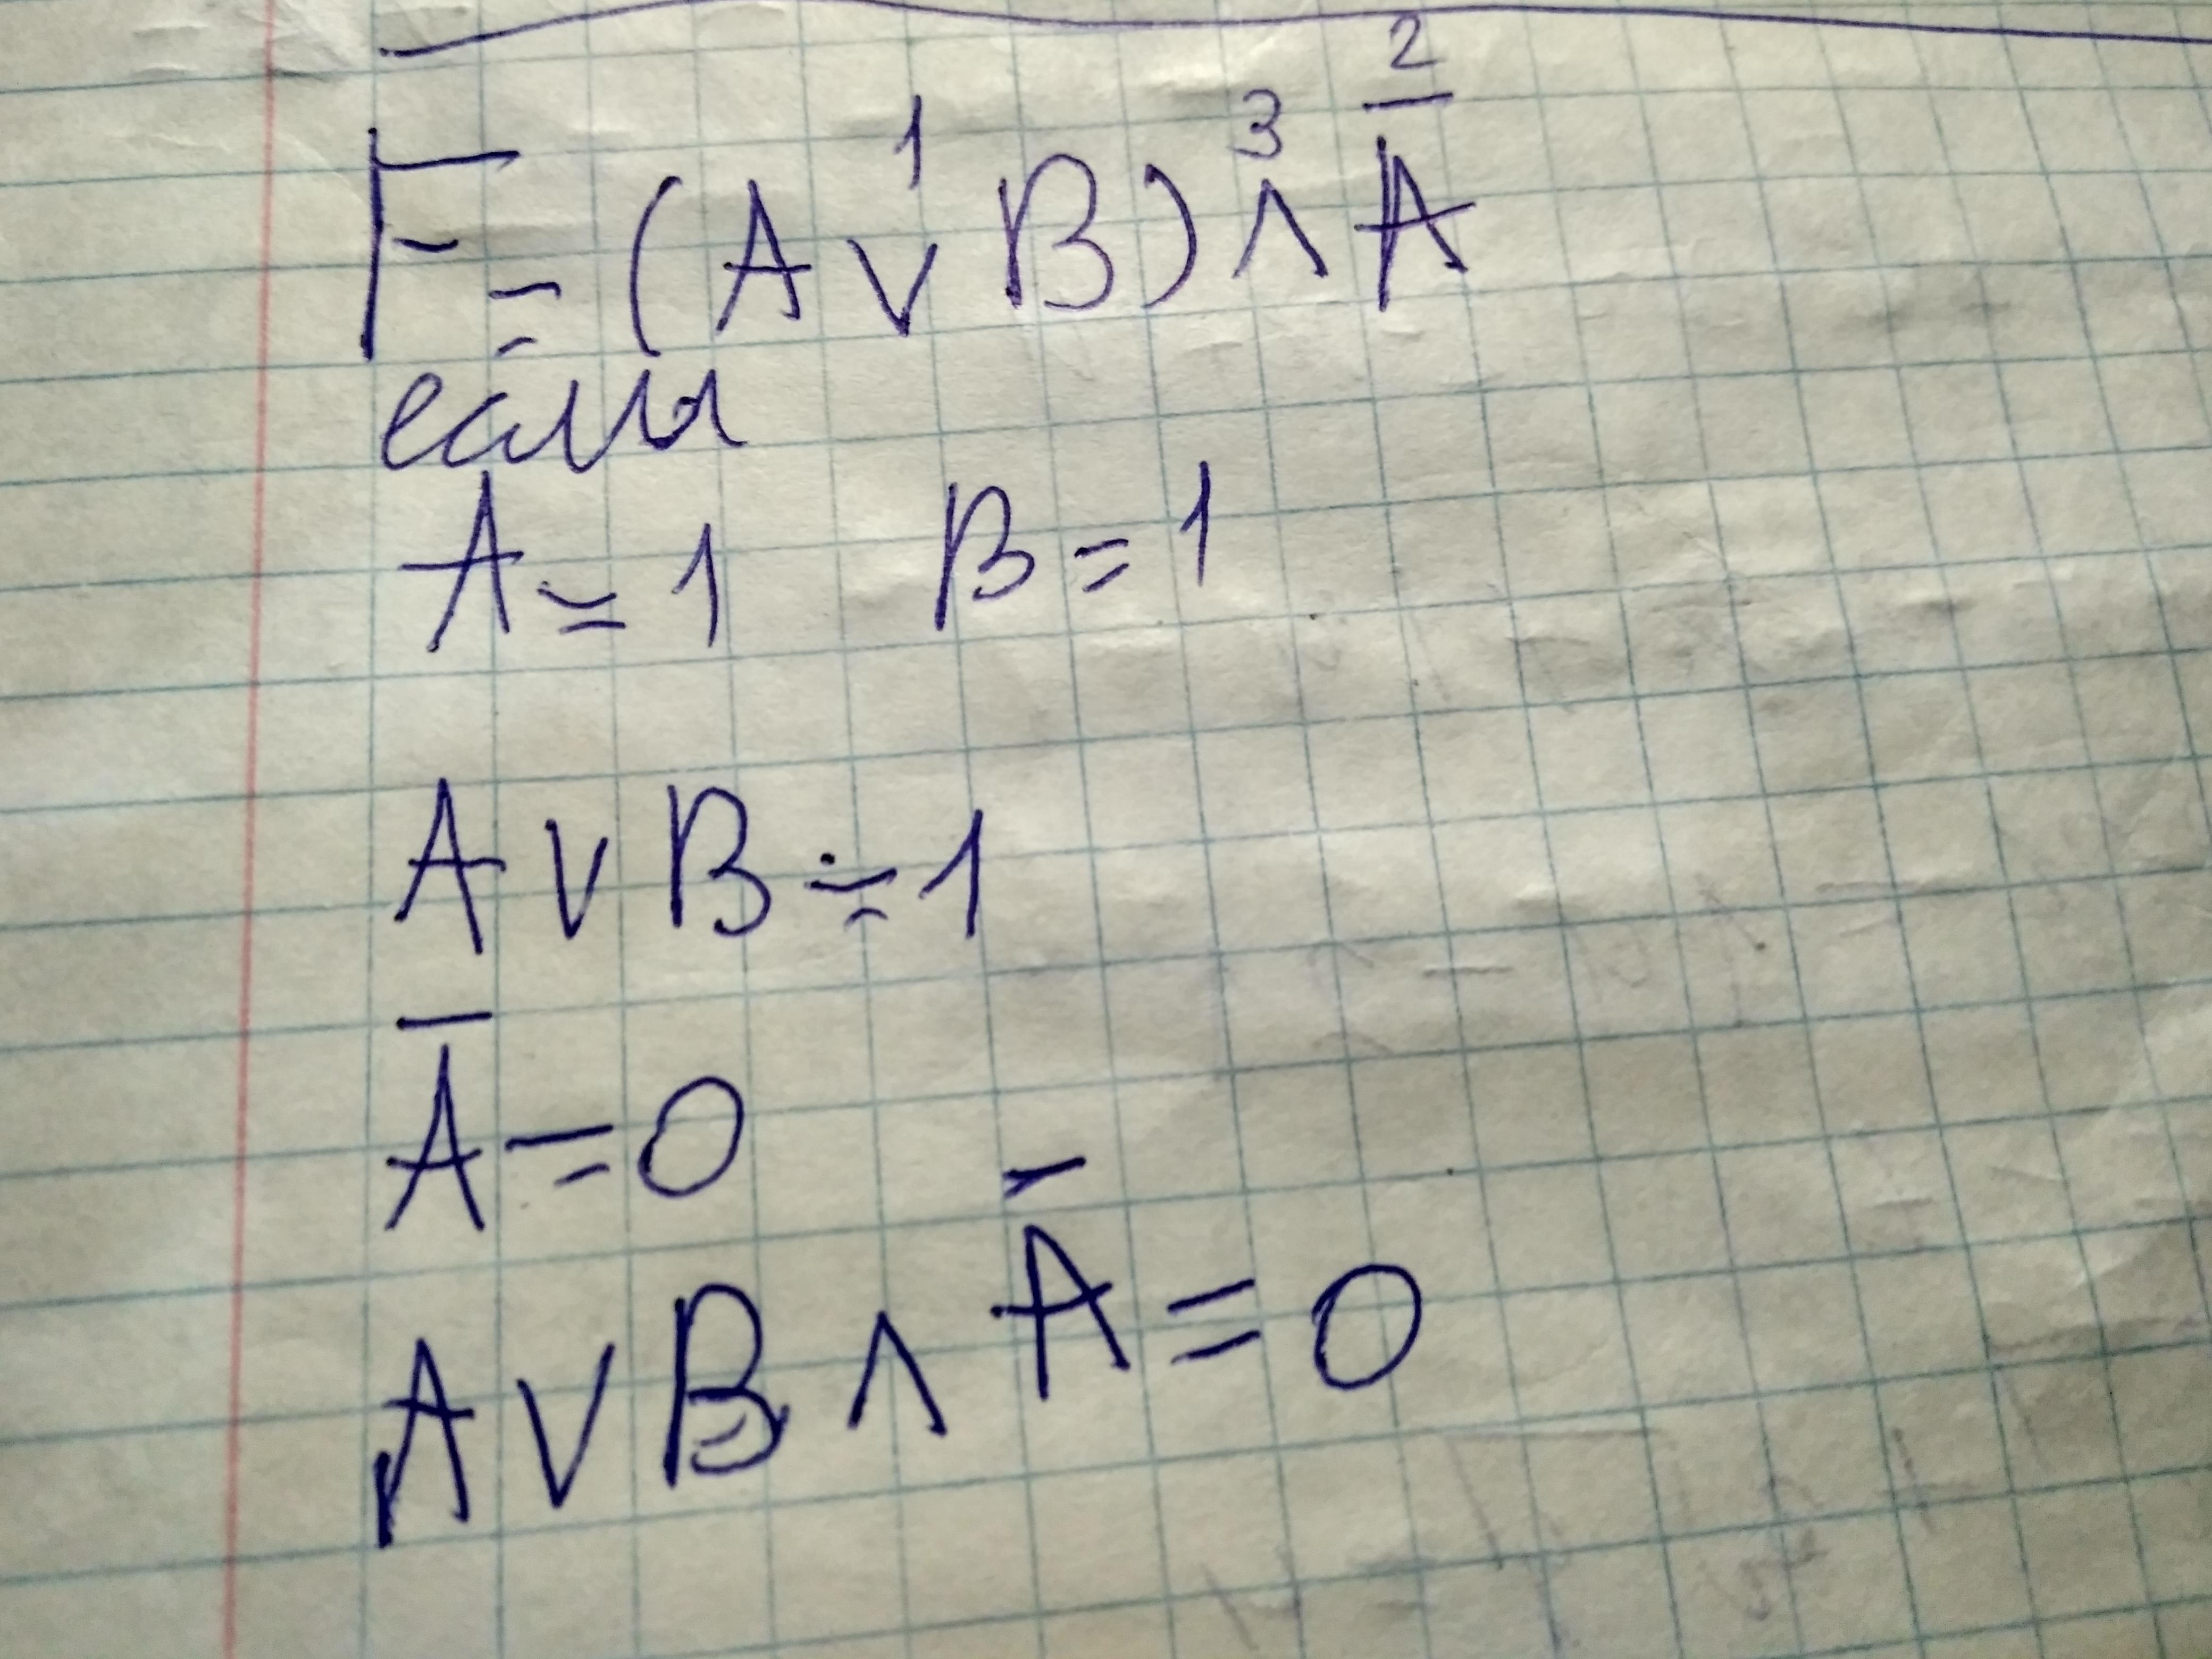 F = (A ∨¹ B) ∧³ A̅²
если
A = 1 B = 1
A ∨ B = 1
A̅ = 0
A ∨ B ∧ A̅ = 0